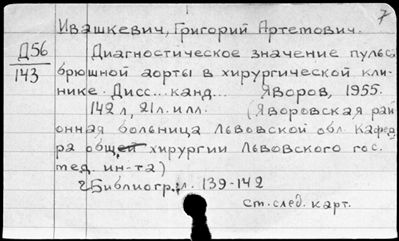 7
Ивашкевич, Григорий Артемович.
Д56
143
Диагностическое значение пульс.
брюшной аорты в хирургической кли-
нике. Дисс... канд... Яворов, 1955.
142 л, 21 л. илл. (Яворовская рай
онная больница Львовской обл. Кафед
ра общей хирургии Львовского гос.
мед. ин-та)
Библиогр. л. 139-142
см. след. карт.